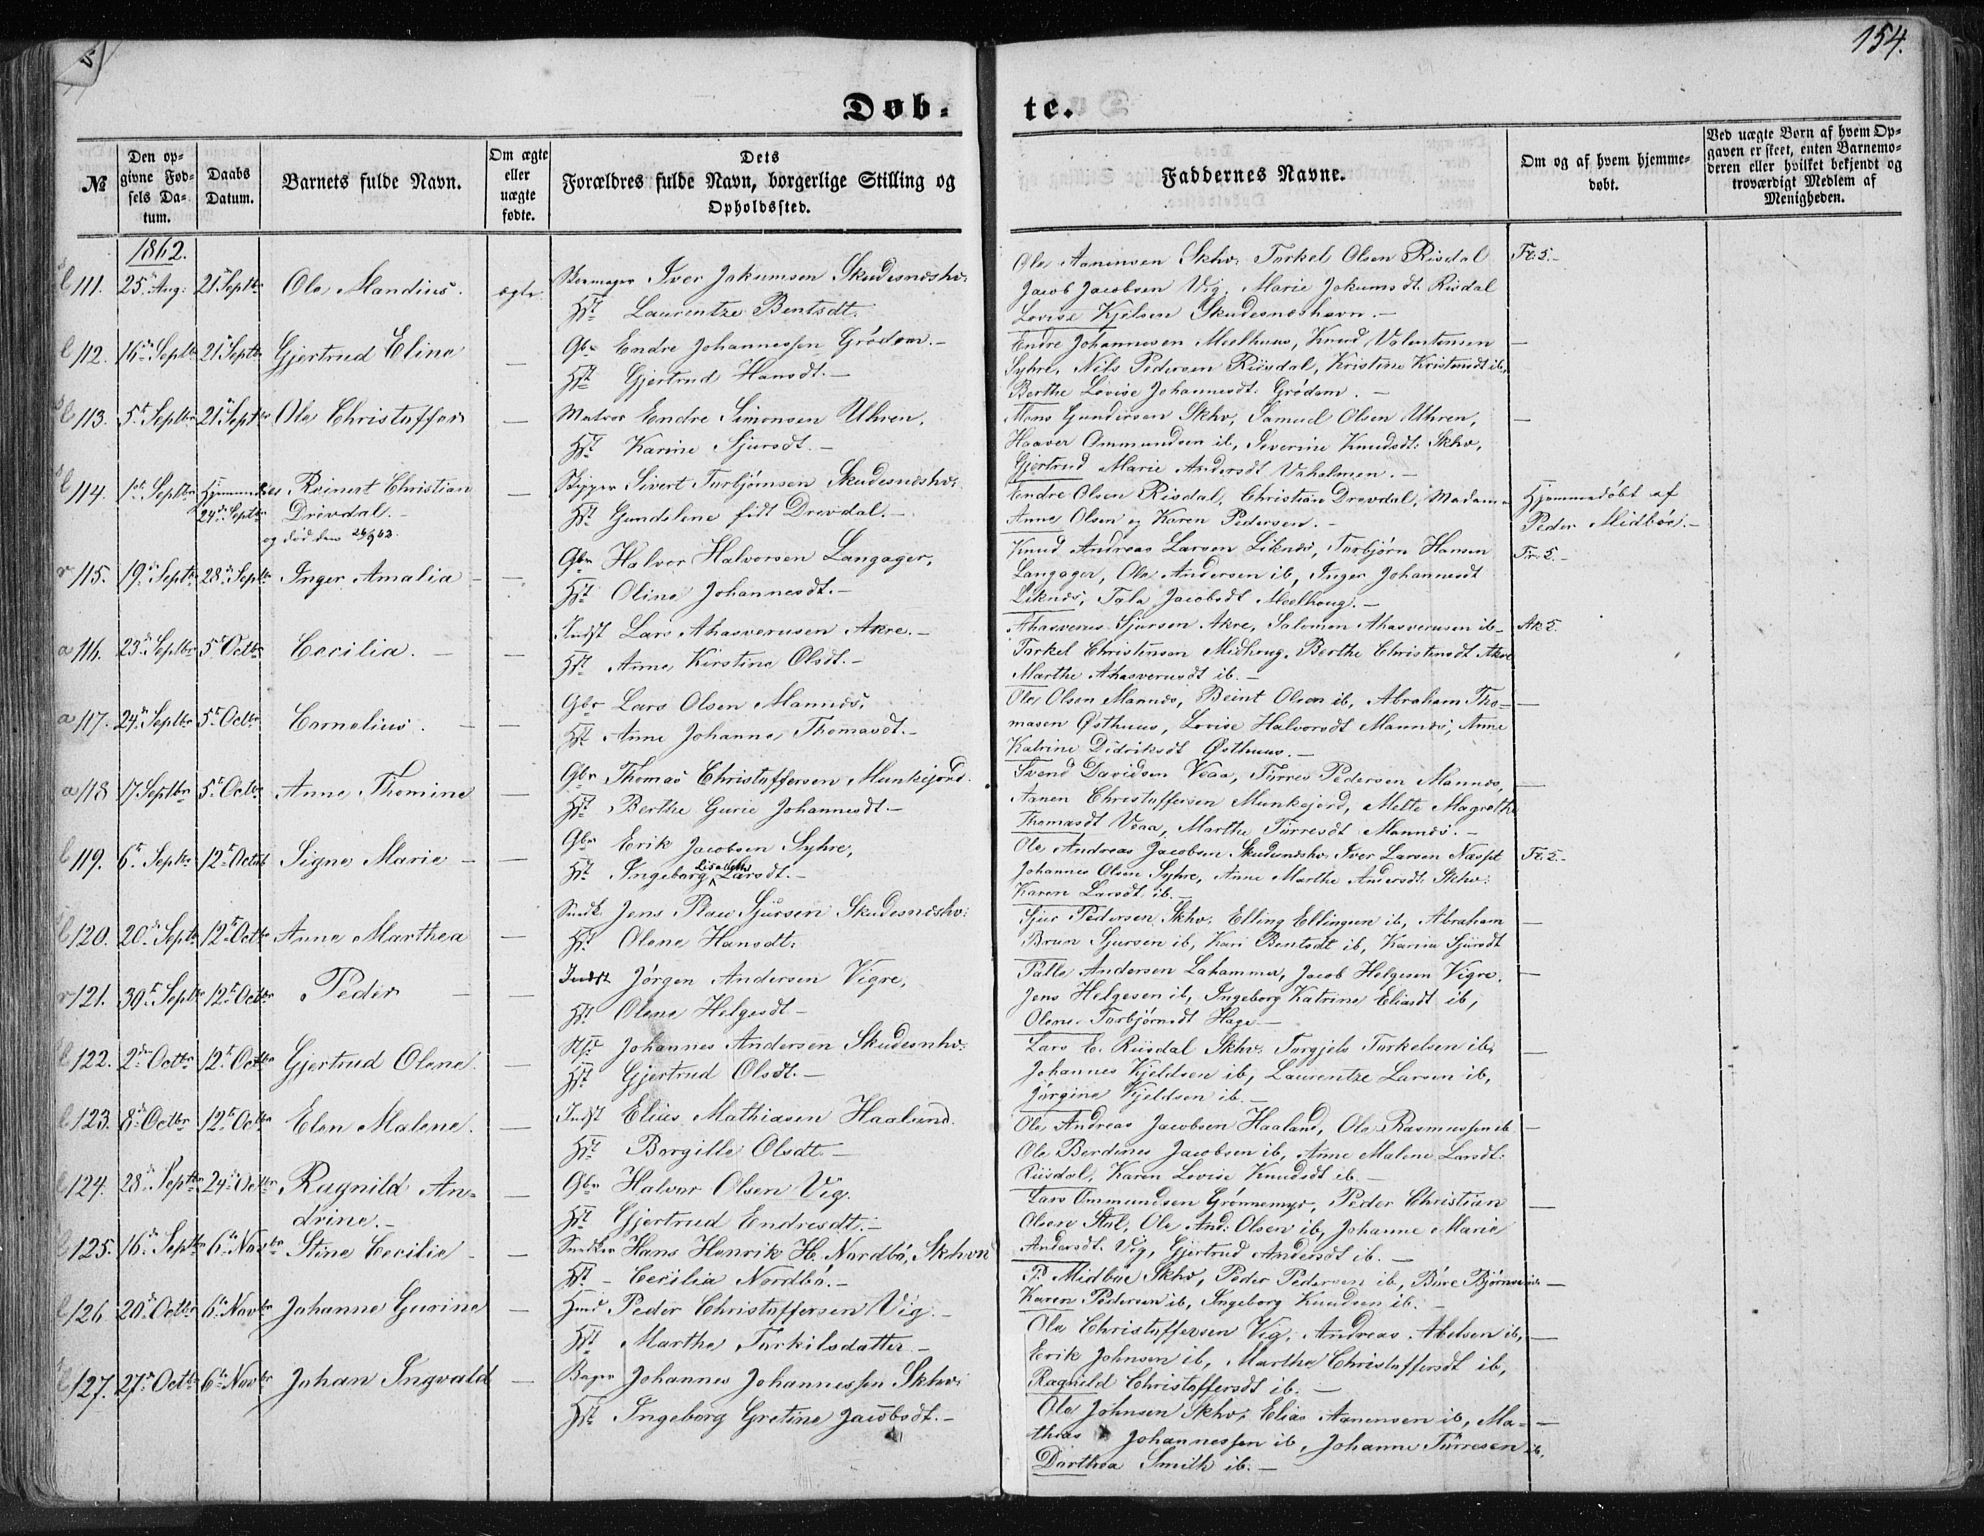 154.
Døb-
te.
№
Den op-
givne Fød-
sels Da-
tum.
Daabs
Datum.
Barnets fulde Navn.
Om ægte
eller
uægte
fødte.
Dets
Forældres fulde Navn, borgerlige Stilling og
Opholdssted.
Faddernes Navne.
Om og af hvem hjemme-
døbt.
Ved uægte Børn af hvem Op-
gaven er skeet, enten Barnemo-
deren eller hvilket bekjendt og
troværdigt Medlem af
Menigheden.
1862.
111. 25 Aug: 21 Septbr Ole Mandius. ægte. Iver Jakumsen Skudesnæshv:
Hst Laurentze Bentsdt.
Ole Aanensen Skhv: Torkel Olsen Risdal Fr. 5.-
Jacob Jacobsen Vig, Marie Jokumsdt. Risdal
Lovise Kjelsen Skudesneshavn.-
112. 16 Septbr 21 Septbr Gjertrud Eline — Gbr Endre Johannessen Grødem.-
Hst Gjertrud Hansdt.-
Endre Johannesen Meelhuus, Knud Valentinsen —
Syhre, Nils Pedersen Riisdal, Kristine Kristensdt ib,
Berthe Lovise Johannesdt. Grødem.-
113. 5t Septbr 21 Septbr Ole Christoffer — Matros Endre Simonsen Uhren,
Hst Karine Sjursdt.-
Mons Gundersen Skhv, Samuel Olsen Uhren, —
Haaver Ommundsen ib, Severine Knudsdt: Skhv,
Gjertrud Marie Andersdt Vaholmen.-
114. 1st Septbr Hjemmedøbt 24 Septbr Reinert Christian
Drevdal.-
og død den 26/9 62.
— Skipper Sivert Torbjørnsen Skudesnæshv:
Hst Gundelene født Drevdal.-
Endre Olsen Risdal, Christian Drevdal, Madam
Anne Olsen og Karen Pedersen.-
Hjemmedøbt af
Peder Midbøe.-
115. 19 Septbr 28 Septbr Inger Amalia — Gbr Halvor Halvorsen Langager,
Hst Oline Johannesdt.-
Knud Andreas Larsen Liknes, Torbjørn Hansen Fr. 5.-
Langager, Ole Andersen ib, Inger Johannesdt
Liknes, Tala Jacobsdt Meelhoug.-
a 116. 23 Septbr 5 Octbr Cecilia.- — Indst Lars Ahasverusen Akre.-
Hst Anne Kirstine Olsdt.-
Ahasverus Sjursen Akre, Salomon Ahasverusen ib- Ak 5.
Torkel Christensen Midhoug, Berthe Christensdt Akre
Marthe Ahasverusdt ib.-
a 117. 24 Septbr 5t Octbr Cornelius. — Gbr Lars Olsen Mannes,
Hst Anne Johanne Thomasdt.-
Ole Olsen Mannes, Beint Olsen ib, Abraham Tho- —
masen Østhuus, Lovise Halvorsdt Mannes, Anne
Katrine Didriksdt Østhuus.-
a 118 17 Septbr 5t Octbr Anne Thomine — Gbr Thomas Christoffersen Munkejord.
Hst Berthe Gurie Johannesdt.-
Svend Davidsen Veaa, Tørres Pedersen Mannes, —
Aanen Christoffersen Munkejord, Mette Magrethe
Thomasdt Veaa, Marthe Tørresdt Mannes.-
119. 6t Septbr 12t Octbr Signe Marie — Gbr Erik Jacobsen Syhre,
Hst Ingeborg Lisabeth Larsdt.-
Ole Andreas Jacobsen Skudesneshv. Iver Larsen Næsset Fr. 5.-
Johannes Olsen Syhre, Anne Marthe Andersdt. Skhv:
Karen Larsdt ib.-
120. 20 Septbr 12t Octbr Anne Marthea — Jens Plau Sjursen Skudesneshv:
Hst Olene Hansdt:
Sjur Pedersen Skhv: Elling Ellingsen ib, Abraham —
Brun Sjursen ib, Kari Bentsdt ib, Karina Sjursdt
r 121. 30t Septbr 12t Octbr Peder — Indst Jørgen Andersen Vigre,
Hst Olene Helgesdt-
Palle Andersen Lahammer, Jacob Helgesen Vigre. —
Jens Helgesen ib, Ingeborg Katrine Eliasdt ib,
Olene Torbjørnsdt Hage-
122. 2 Octbr 12t Octbr Gjertrud Olene. — Johannes Andersen Skudesnhv:
Hst Gjertrud Olsdt.-
Lars E. Riisdal Skhv. Torgjels Torkelsen ib, —
Johannes Kjeldsen ib, Laurentze Larsen ib,
Jørgine Kjeldsen ib.-
123. 8 Octbr 12t Octbr Elen Malene. — Indst Elias Mathiasen Haaland.
Hst Borgille Olsdt.-
Ole Andreas Jacobsen Haaland, Ole Rasmussen ib —
Ole Berdines Jacobsen ib, Anne Malene Larsdt:
Riisdal, Karen Lovise Knudsdt ib.-
124. 28 Septbr 24 Octbr Ragnild An-
drine.-
— Gbr Halvor Olsen Vig.
Hst Gjertrud Endresdt.-
Lars Ommundsen Grønnemyr, Peder Christian —
Olsen Stol, Ole And: Olsen ib, Johanne Marie
Andersdt. Vig, Gjertrud Andersdt ib.-
125. 16 Septbr 6 Novbr Stine Cecilie — Snedker Hans Henrik H. Nordbø, Skhvn
Hst - Cecilia Nordbø.-
P. Midbøe Skhv, Peder Pedersen ib, Børe Bjørnsen ib —
Karen Pedersen ib, Ingeborg Knudsen ib.-
126 20 Octbr 6 Novbr Johanne Gurine — Hmd Peder Christoffersen Vig.-
Hst Marthe Torkilsdatter-
Ole Christoffersen Vig, Andreas Abelsen ib, —
Erik Johnsen ib, Marthe Christoffersdt ib,
Ragnild Christoffersdt ib.-
127. 27 Octbr 6 Novbr Johan Ingvald — Bager Johannes Johannessen Skhv:
Hst Ingeborg Gretine Jacobsdt.-
Ole Johnsen Skhv, Elias Aanensen ib, Ma- —
thias Johannessen ib, Johanne Tørresen ib,
Dorthea Smith ib.-